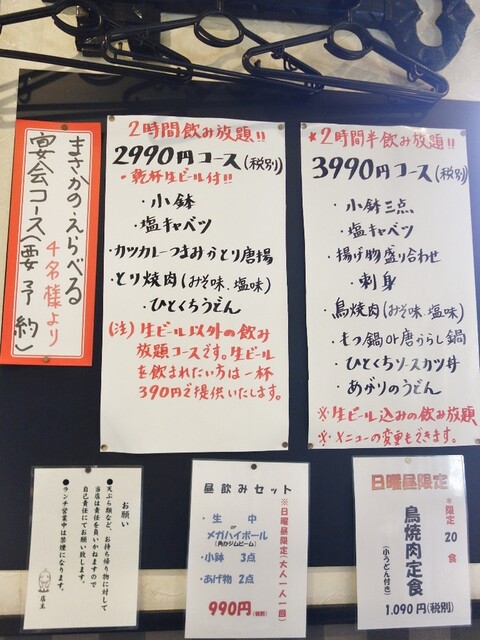 まさかの・えらべる
4名様より
宴会コース(要予約)
2時間飲み放題!!
2990円コース(税別)
・乾杯生ビール付!!
・小鉢
・塩キャベツ
・カツカレーつまみorとり唐揚
・とり焼肉(みそ味、塩味)
・ひとくちうどん
(注)生ビール以外の飲み
放題コースです。生ビール
を飲まれたい方は一杯
390円で提供いたします。
★2時間半飲み放題!!
3990円コース(税別)
・小鉢三点
・塩キャベツ
・揚げ物盛り合わせ
・刺身
・鳥焼肉(みそ味、塩味)
・もつ鍋or唐うらし鍋
・ひとくちソースカツ丼
・あがりのうどん
※生ビール込みの飲み放題
※メニューの変更もできます。
お願い
●天ぷら類など、お持ち帰り物に対して
当店は責任を負いかねますので
自己責任にてお願い致します。
●ランチ営業中は禁煙になります。
店主
昼飲みセット
※日曜昼限定(大人一人一回)
・生 中
or
メガハイボール
(角かジムビーム)
・小鉢 3点
・あげ物 2点
990円(税別)
日曜昼限定
※限定 20 食
鳥焼肉定食
(小うどん付き)
1,090円(税別)